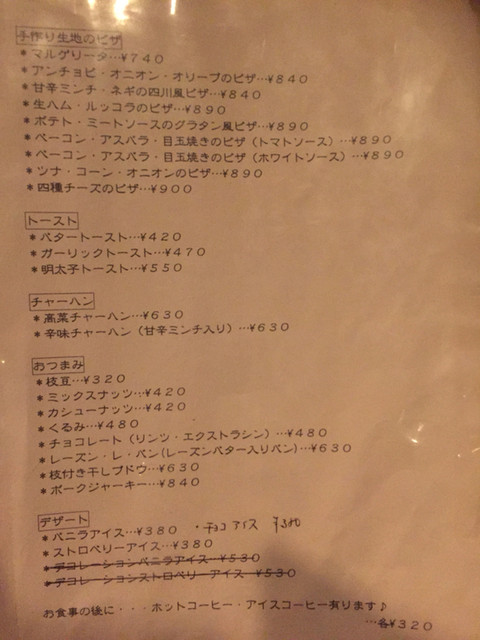 手作り生地のピザ
*マルゲリータ…¥740
*アンチョビ・オニオン・オリーブのピザ…¥840
*甘辛ミンチ・ネギの四川風ピザ…¥840
*生ハム・ルッコラのピザ…¥890
*ポテト・ミートソースのグラタン風ピザ…¥890
*ベーコン・アスパラ・目玉焼きのピザ（トマトソース）…¥890
*ベーコン・アスパラ・目玉焼きのピザ（ホワイトソース）…¥890
*ツナ・コーン・オニオンのピザ…¥890
*四種チーズのピザ…¥900
トースト
*バタートースト…¥420
*ガーリックトースト…¥470
*明太子トースト…¥550
チャーハン
*高菜チャーハン…¥630
*辛味チャーハン（甘辛ミンチ入り）…¥630
おつまみ
*枝豆…¥320
*ミックスナッツ…¥420
*カシューナッツ…¥420
*くるみ…¥480
*チョコレート（リンツ・エクストラシン）…¥480
*レーズン・レ・パン(レーズンバター入りパン)…¥630
*枝付き干しブドウ…¥630
*ポークジャーキー…¥840
デザート
*バニラアイス…¥380 ・チョコアイス ¥380
*ストロベリーアイス…¥380
*デコレーションバニラアイス…¥530
*デコレーションストロベリーアイス…¥530
お食事の後に・・・ホットコーヒー・アイスコーヒー有ります♪
…各¥320